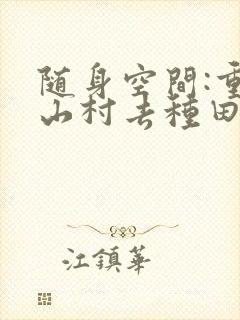 随身空間:重
山村去種田
江鎮華